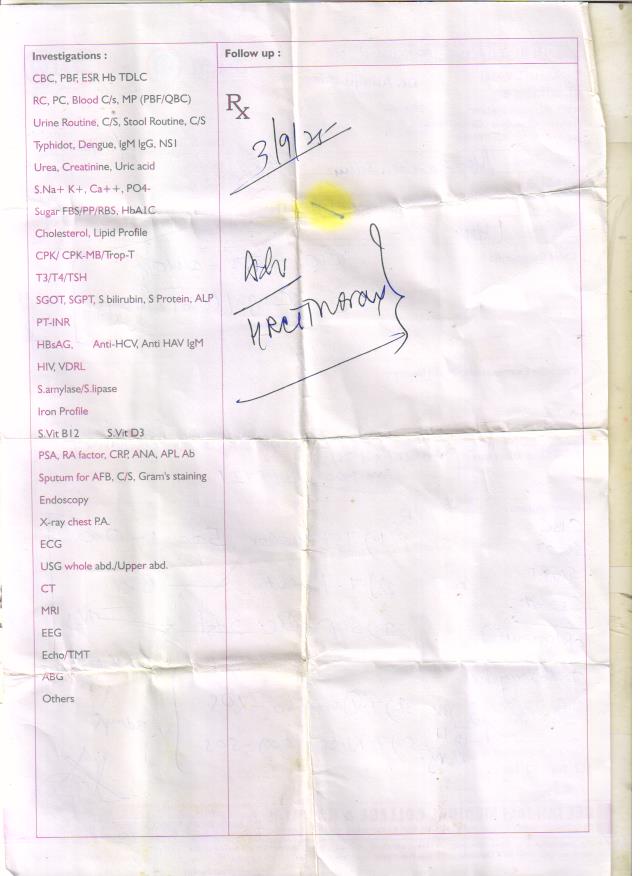 Investigations :
CBC, PBF, ESR Hb TDLC
RC, PC, Blood C/s, MP (PBF/QBC)
Urine Routine, C/S, Stool Routine, C/S
Typhidot, Dengue, IgM IgG, NS1
Urea, Creatinine, Uric acid
S.Na+ K+, Ca++, PO4-
Sugar FBS/PP/RBS, HbA1C
Cholesterol, Lipid Profile
CPK/ CPK-MB/Trop-T
T3/T4/TSH
SGOT, SGPT, S bilirubin, S Protein, ALP
PT-INR
HBsAG, Anti-HCV, Anti HAV IgM
HIV, VDRL
S.amylase/S.lipase
Iron Profile
S.Vit B12 S.Vit D3
PSA, RA factor, CRP, ANA, APL Ab
Sputum for AFB, C/S, Gram's staining
Endoscopy
X-ray chest P.A.
ECG
USG whole abd./Upper abd.
CT
MRI
EEG
Echo/TMT
ABG
Others
Follow up :
Rx
3/9/25
Adv
HRCT Thorax